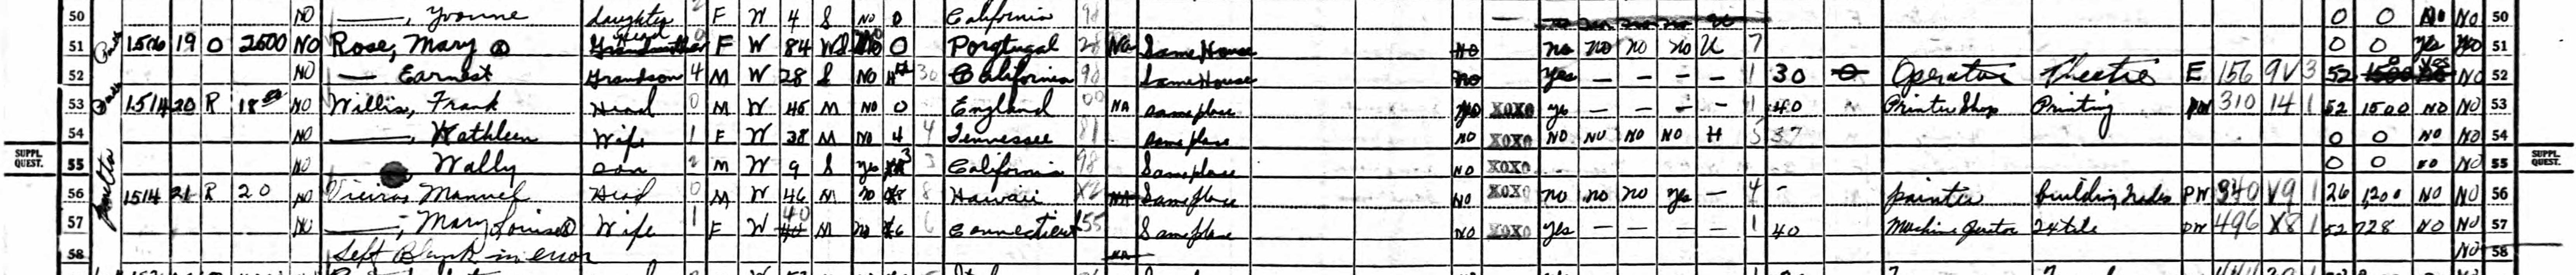 50 NO —, Yvonne daughter 2 F W 4 S NO 0 California 98 — 0 0 No No 50
51 1506 19 O 2500 NO Rose, Mary ⓧ Head Grandmother 0 F W 84 Wd No 0 Porgtugal NA Same House No no no no no U 7 0 0 yes No 51
52 NO — Earnest Grandson 4 M W 28 S NO H4 30 California 98 Same House No Yes — — — — 1 30 0 Operator Theatre E 156 9V 3 52 1500 No 52
53 1514 20 R 18 00 NO Willis, Frank Head 0 M W 46 M NO 0 England 00 NA Same place No XOXO yes — — — — 1 40 Printer Shop Printing PW 310 14 1 52 1500 NO NO 53
54 NO —, Kathleen Wife 1 F W 38 M NO 4 4 Tennessee 81 Same place NO XOXO NO NO NO NO H 5 37 0 0 NO NO 54
SUPPL. QUEST. 55 NO Wally son 2 M W 9 S Yes 3 3 California 98 Same place NO XOXO 0 0 NO NO 55 SUPPL. QUEST.
56 1514 21 R 20 NO Vieira, Manuel Head 0 M W 46 M no 8 8 Hawaii X2 NA Same place NO XOXO no no no yes — 4 - painter building trades PW 340 V9 1 26 1,200 NO NO 56
57 NO —, Mary Louise ⓧ Wife 1 F W 40 M no 6 6 Connecticut 55 Same place NO XOXO Yes — — — — 1 40 Machine 496 X8 1 52 728 NO NO 57
58 Left Blank in error NA NO 58